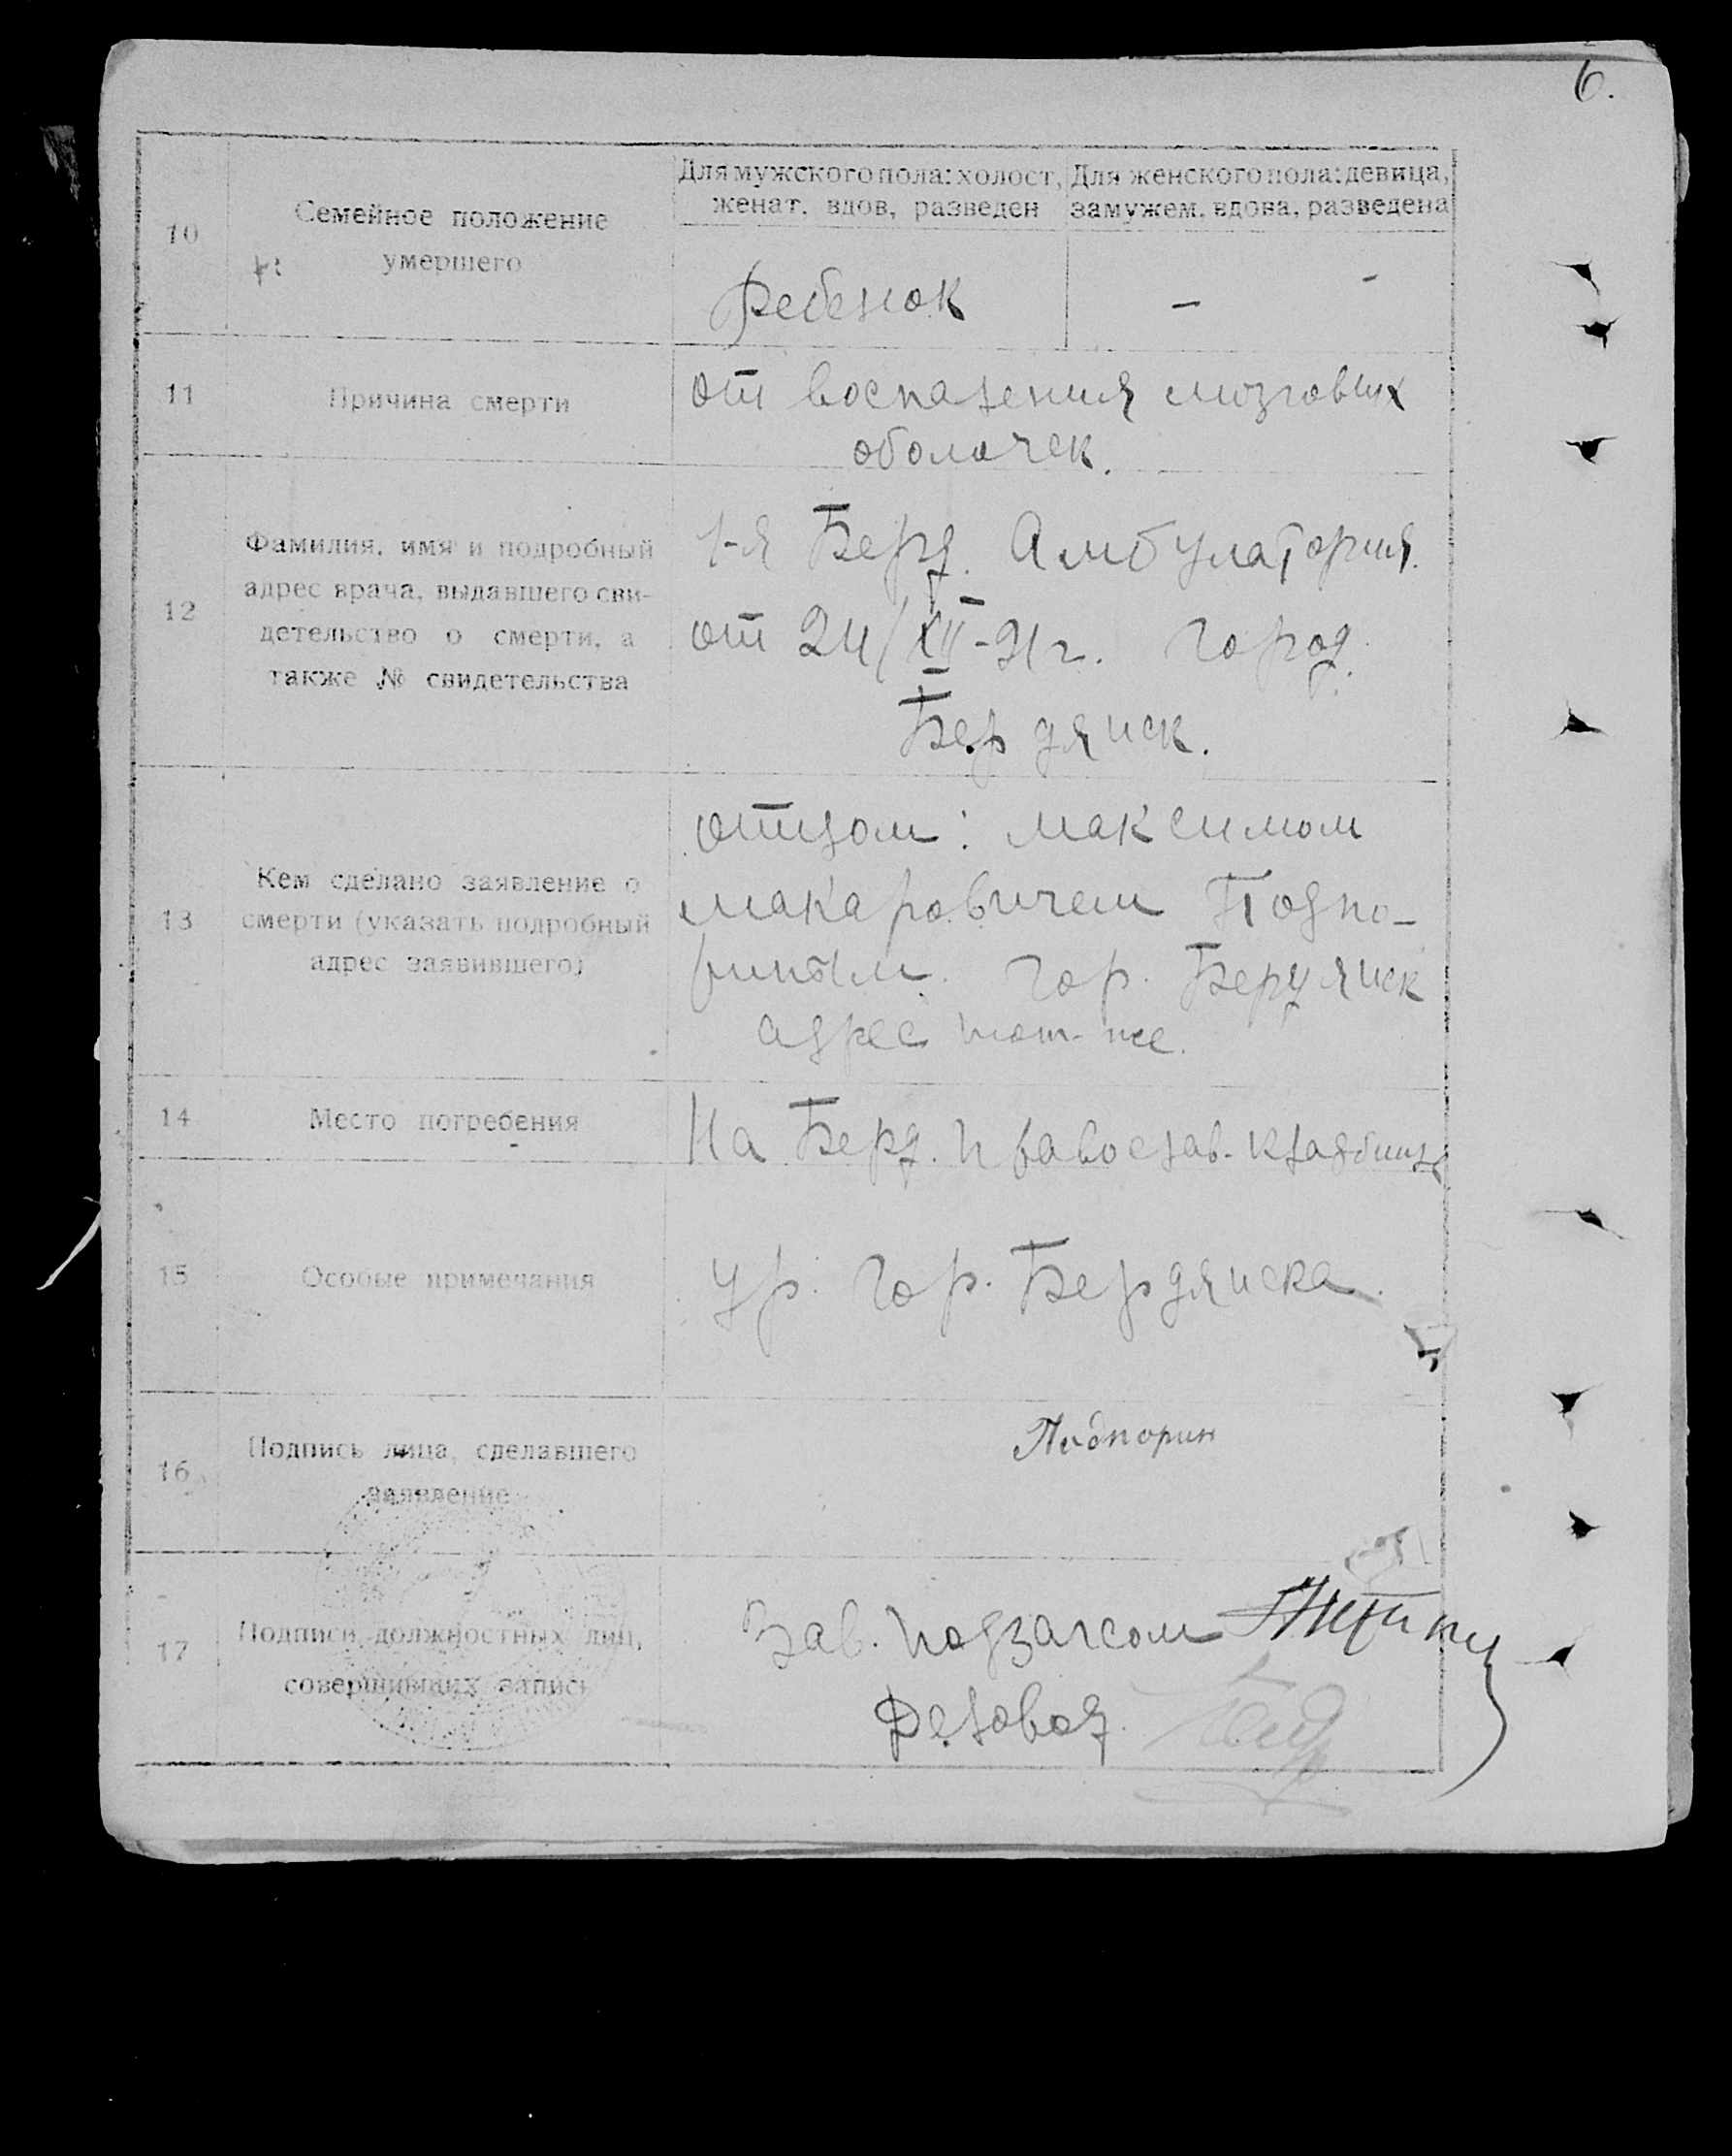 6.
10
Семейное положение
умершего
Для мужского пола: холост,
женат, вдов, разведен
Для женского пола: девица,
замужем, вдова, разведена
Ребенок
-
-
11
Причина смерти
от воспаления мозговых
оболочек.
12
Фамилия, имя и подробный
адрес врача, выдавшего сви-
детельство о смерти, а
также № свидетельства
1-я Берд. Амбулатория.
от 24/XII-21г. город.
Бердянск.
13
Кем сделано заявление о
смерти (указать подробный
адрес заявившего)
отцом: Максимом
Макаровичем Подпо-
риным. гор. Бердянск
адрес тот-же.
14
Место погребения
На Берд. православ. кладбище
15
Особые примечания
ур. гор. Бердянска.
16
Подпись лица, сделавшего
заявление
Подпорин
17
Подписи должностных лиц,
совершивших запись
Зав. подзагсом
Деловод.